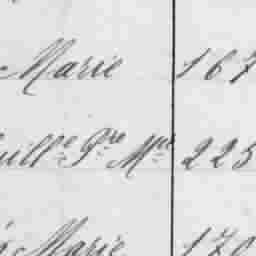 Marie 167
ulle Pre Mie 225
Marie 170